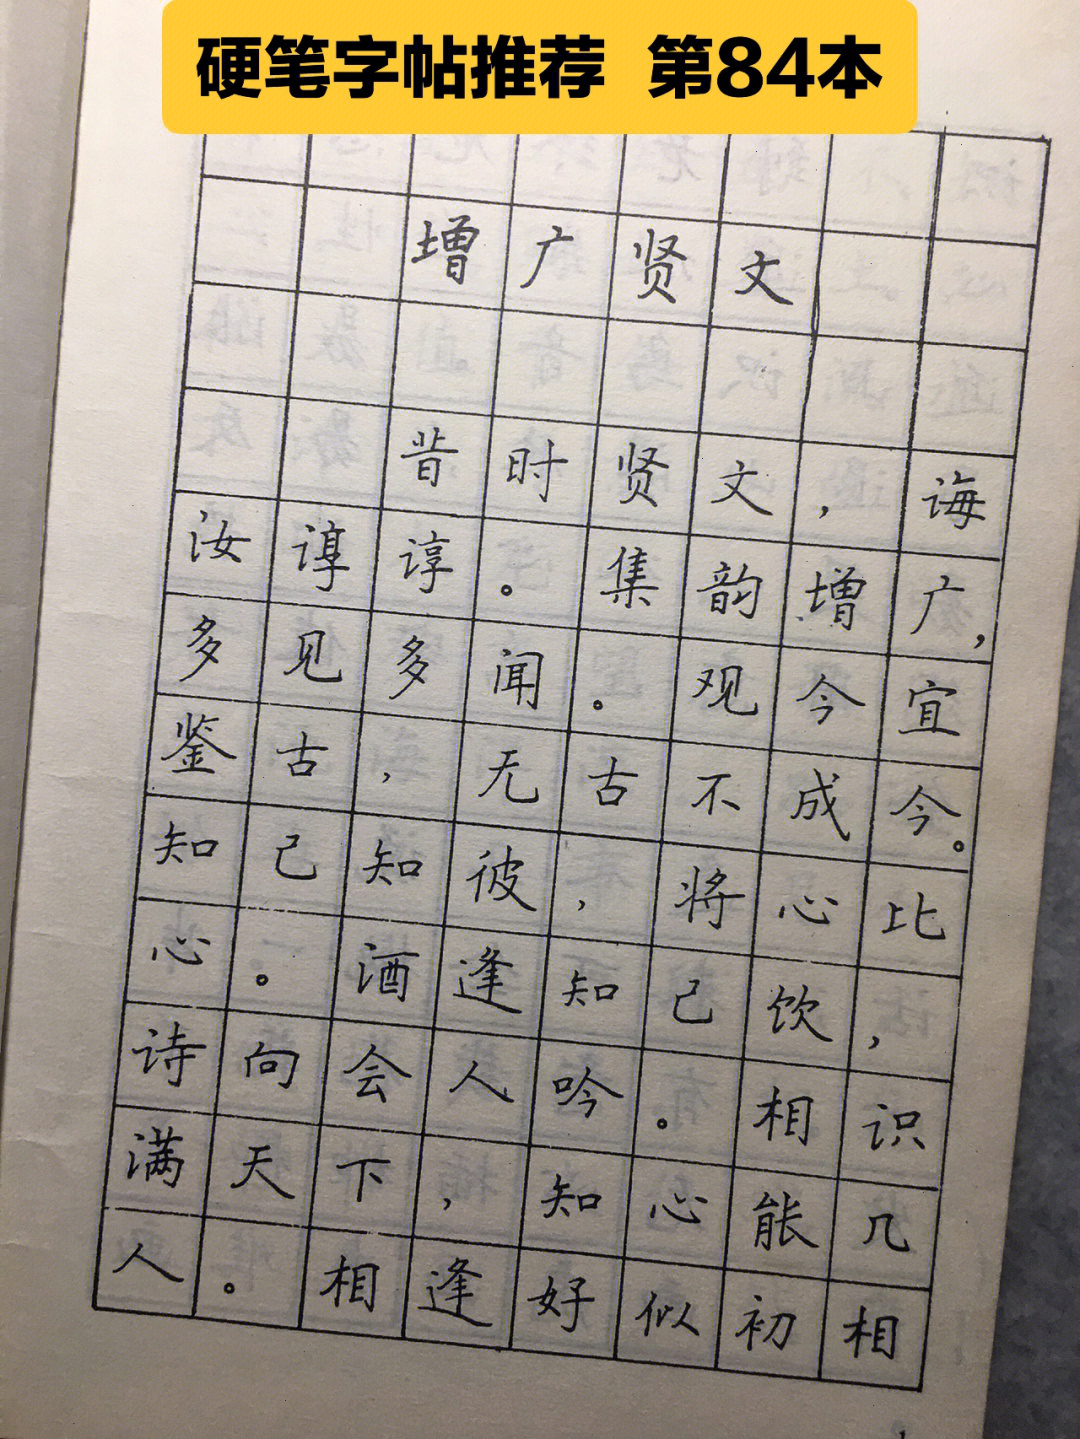 硬笔字帖推荐 第84本
增广贤文
昔时贤文，诲
汝谆谆。集韵增广，
多见多闻。观今宜
鉴古，无古不成今。
知己知彼，将心比
心。酒逢知己饮，
诗向会人吟。相识
满天下，知心能几
人。相逢好似初相